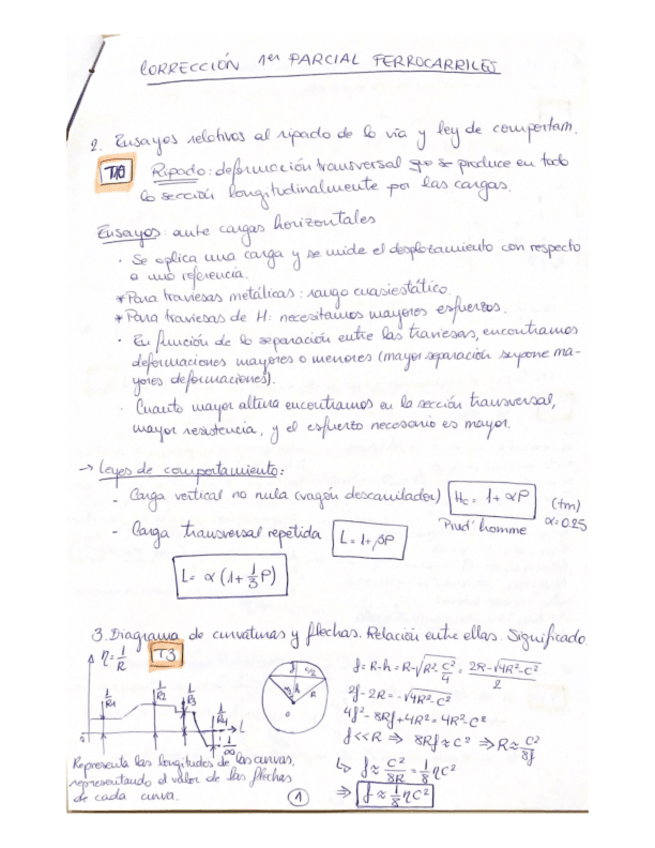 CORRECCIÓN 1er PARCIAL FERROCARRILES
2. Ensayos relativos al ripado de la vía y ley de comportam.
T10
Ripado: deformación transversal que se produce en toda
la sección longitudinalmente por las cargas.
Ensayos: ante cargas horizontales
· Se aplica una carga y se mide el desplazamiento con respecto
a una referencia.
* Para traviesas metálicas: rango cuasiestático.
* Para traviesas de H: necesitamos mayores esfuerzos.
· En función de la separación entre las traviesas, encontramos
deformaciones mayores o menores (mayor separación supone ma-
yores deformaciones).
· Cuanto mayor altura encontramos en la sección transversal,
mayor resistencia, y el esfuerzo necesario es mayor.
→ Leyes de comportamiento:
- Carga vertical no nula (vagón descarrilador) Hc = 1 + αP (tm)
Prud'homme α=0.25
- Carga transversal repetida L = 1 + βP
L = α (1 + 1/3 P)
3. Diagrama de curvaturas y flechas. Relación entre ellas. Significado
η = 1/R T3
1/R1 1/R2 1/R3 1/R4 L
1/∞
f c/2
h R
0
f = R-h = R-√(R²-c²/4) = (2R-√(4R²-c²))/2
2f - 2R = -√(4R²-c²)
4f² - 8Rf + 4R² = 4R² - c²
f << R ⇒ 8Rf ≈ c² ⇒ R ≈ c²/8f
↳ f ≈ c²/8R = 1/8 ηc²
⇒ f ≈ 1/8 ηc²
Representa las longitudes de las curvas,
representando el valor de las flechas
de cada curva.
1